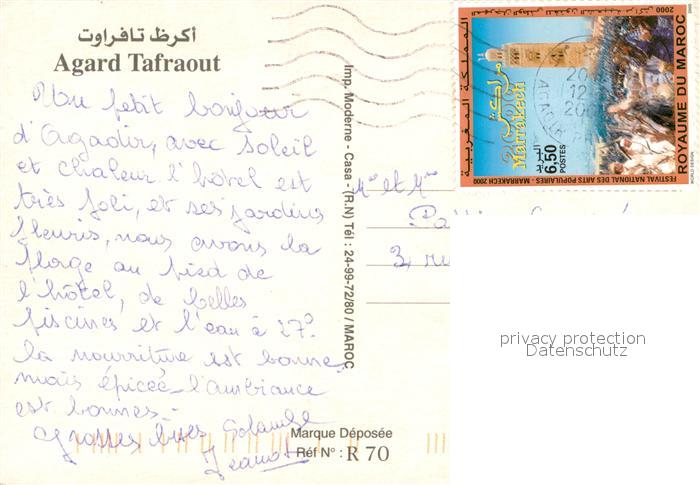 أكرظ تافراوت
Agard Tafraout
Un petit bonjour
d'Agadir, avec soleil
et chaleur l'hôtel est
très joli, et ses jardins
fleuris, nous avons la
plage au pied de
l'hôtel, de belles
piscines et l'eau à 27°
la nourriture est bonne
mais épicée - l'ambiance
est bonnes -
Grosses bises Solange
Jeannot
Imp. Moderne - Casa - (R.N) Tél : 24-99-72/80 / MAROC
Mr et Mme
3, ru
Marque Déposée
Réf N° : R 70
المملكة المغربية
2000
مراكش
Marrakech
البريد
6,50
POSTES
FESTIVAL NATIONAL DES ARTS POPULAIRES - MARRAKECH 2000
ROYAUME DU MAROC
privacy protection
Datenschutz